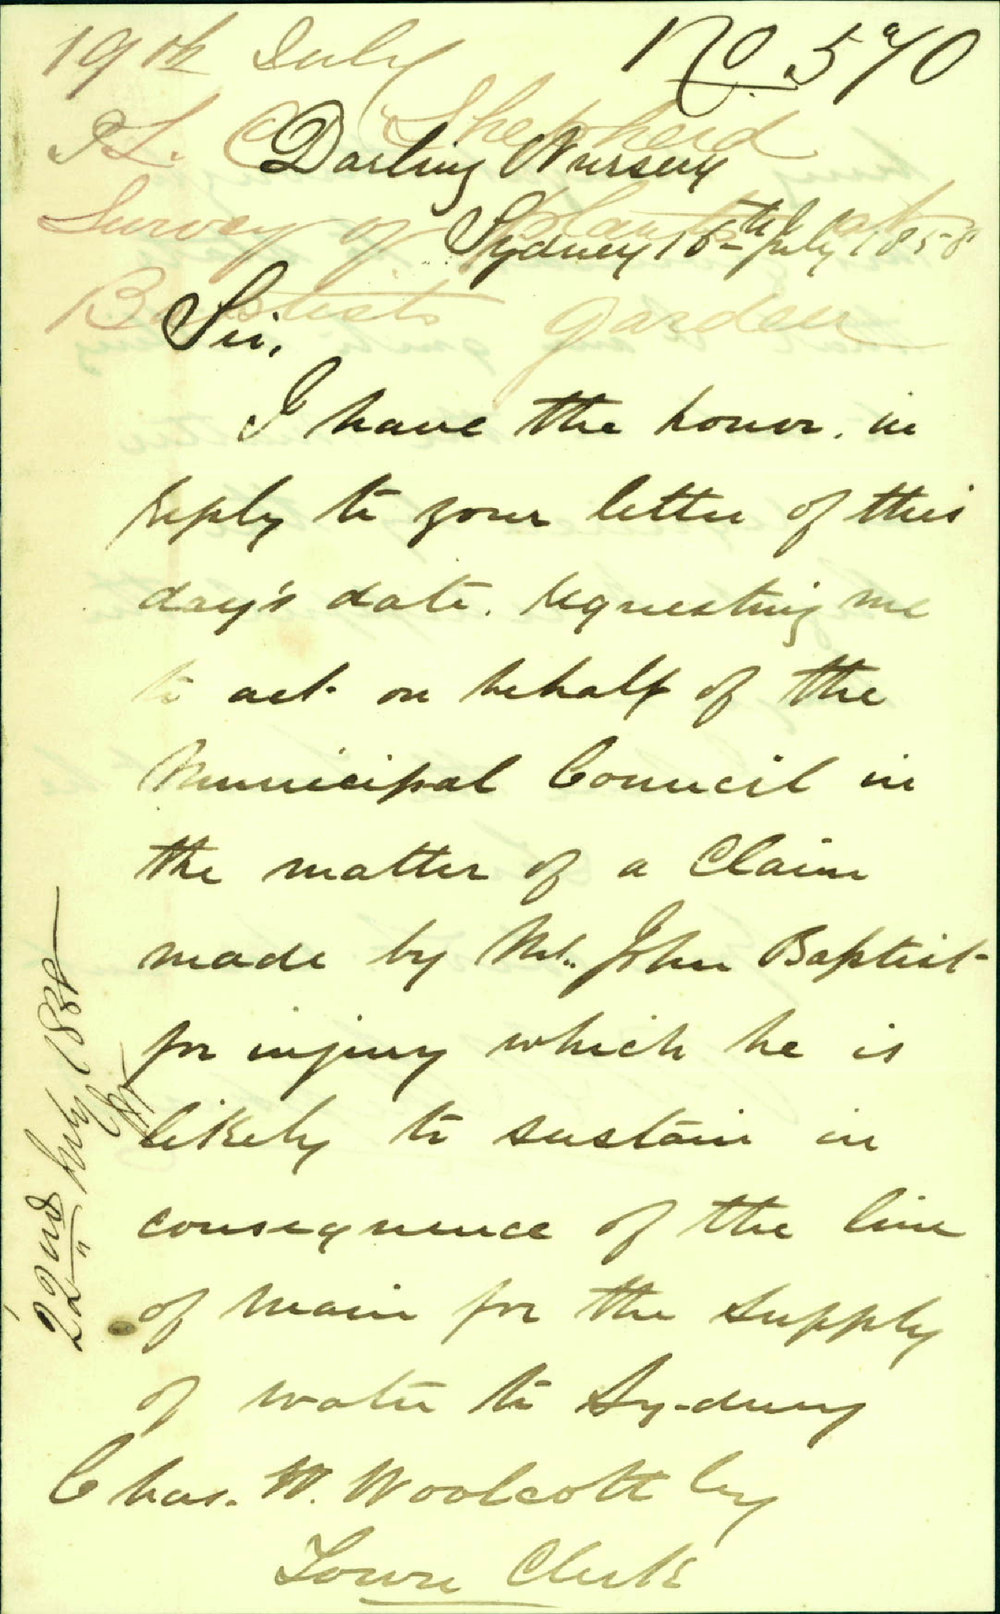 No. 570
19th July
T. C. Shepherd
Survey of Plants at
Baptists garden
Darling Nursery
Sydney 16th July 1858
Sir,
I have the honor. in
reply to your letter of this
day's date. requesting me
to act on behalf of the
Municipal Council in
the matter of a Claim
made by Mr. John Baptist
for injury which he is
likely to sustain in
consequence of the line
of main for the supply
of water to Sydney
Chas. W. Woolcott Esq
Town Clerk
22nd July 1858